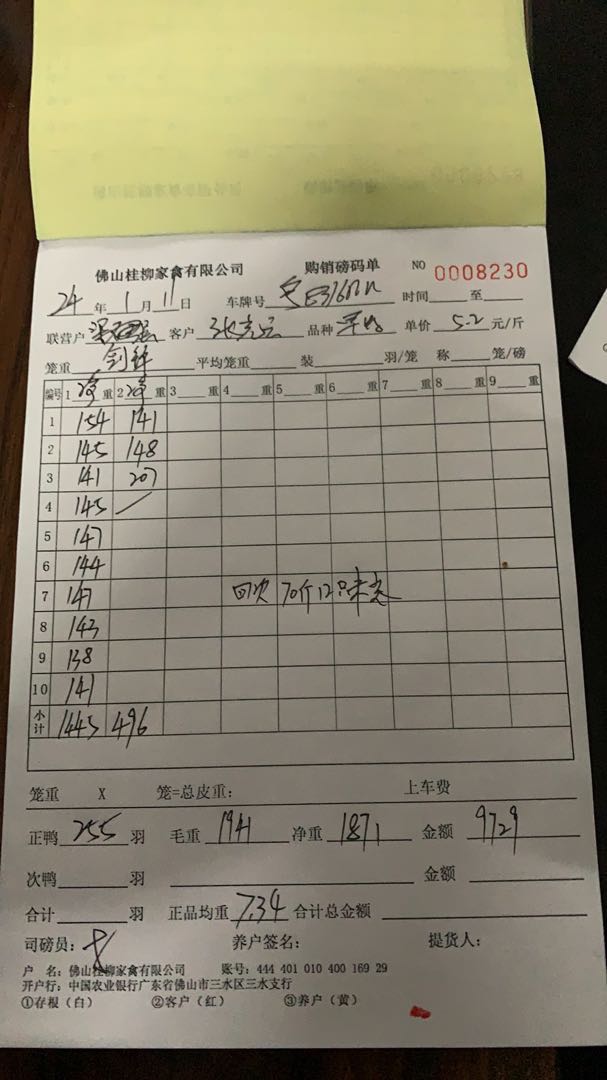 佛山桂柳家禽有限公司 购销磅码单 NO 0008230
24年1月11日 车牌号 时间 至
联营户 客户 品种 单价 5.2 元/斤
笼重 平均笼重 装 羽/笼 称 笼/磅
编号 1 净 重 2 净 重 3 重 4 重 5 重 6 重 7 重 8 重 9 重
1 154 141
2 145 148
3 141 207
4 145
5 147
6 144
7 147 回次 70斤12只未交
8 143
9 138
10 141
小计 1445 496
笼重 X 笼=总皮重: 上车费
正鸭 255 羽 毛重 1941 净重 1871 金额 9729
次鸭 羽 金额
合计 羽 正品均重 7.34 合计总金额
司磅员: 养户签名: 提货人:
户 名: 佛山桂柳家禽有限公司 账号: 444 401 010 400 169 29
开户行: 中国农业银行广东省佛山市三水区三水支行
①存根（白） ②客户（红） ③养户（黄）